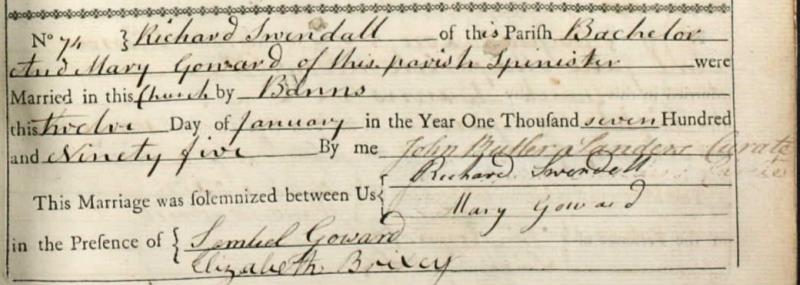 No 74 } Richard Swendall of this Parish Bachelor
And Mary Goward of this parish Spinister were
Married in this Church by Banns
this twelve Day of January in the Year One Thousand seven Hundred
and Ninety five By me John Butler Sanders Curate
Richard Swendell
This Marriage was solemnized between Us {
Mary Goward
in the Presence of { Samuel Goward
Elizabeth Brixey